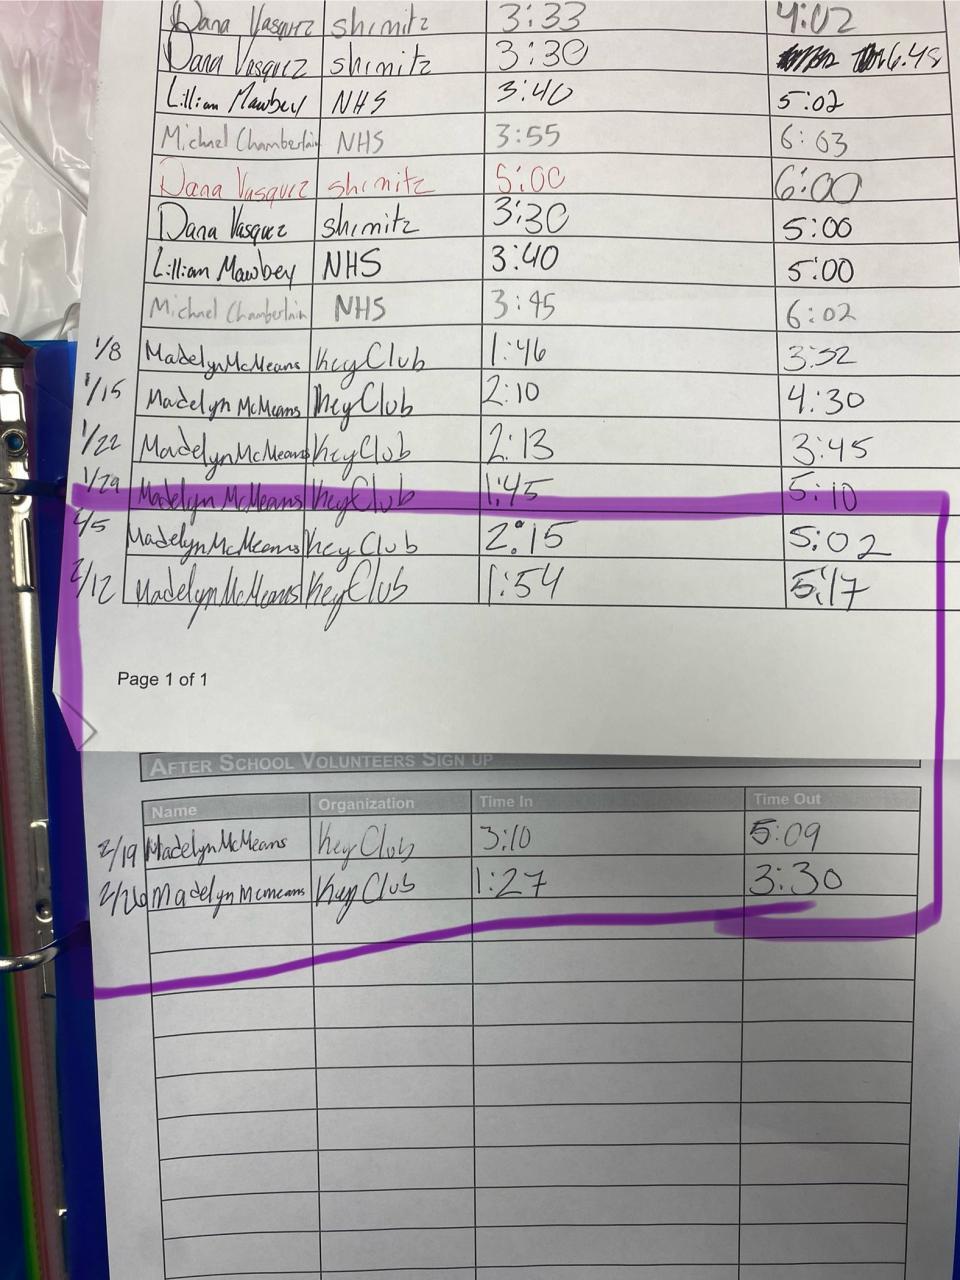 Dana Vasquez shimitz 3:33 4:02
Dana Vasquez shimitz 3:30 6:48
Lillian Mawbey NHS 3:40 5:02
Michael Chamberlain NHS 3:55 6:03
Dana Vasquez shimitz 5:00 6:00
Dana Vasquez shimitz 3:30 5:00
Lillian Mawbey NHS 3:40 5:00
Michael Chamberlain NHS 3:45 6:02
1/8 Madelyn McMeans Key Club 1:46 3:32
1/15 Madelyn McMeans Key Club 2:10 4:30
1/22 Madelyn McMeans Key Club 2:13 3:45
1/29 Madelyn McMeans Key Club 1:45 5:10
2/5 Madelyn McMeans Key Club 2:15 5:02
2/12 Madelyn McMeans Key Club 1:54 5:17
Page 1 of 1
AFTER SCHOOL VOLUNTEERS SIGN UP
Name Organization Time In Time Out
2/19 Madelyn McMeans Key Club 3:10 5:09
2/26 Madelyn Mcmeans Key Club 1:27 3:30